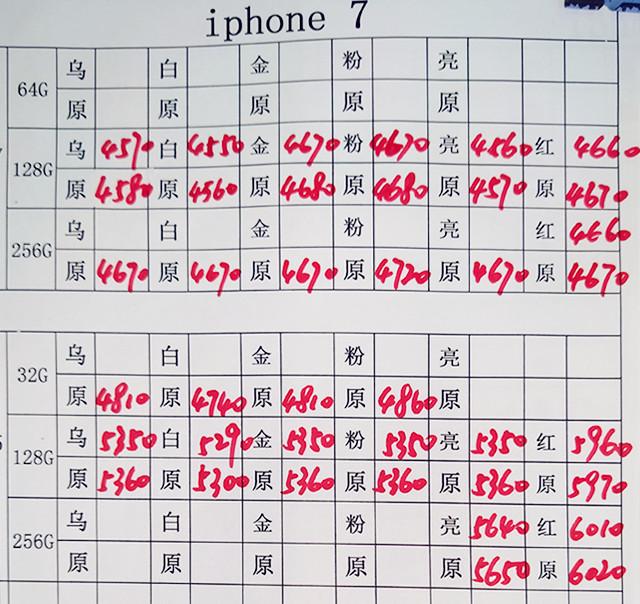 iphone 7
64G 乌 白 金 粉 亮
原 原 原 原 原
128G 乌 4570 白 4550 金 4670 粉 4670 亮 4560 红 4660
原 4580 原 4560 原 4680 原 4680 原 4570 原 4670
256G 乌 白 金 粉 亮 红 4660
原 4670 原 4670 原 4670 原 4720 原 4670 原 4670
32G 乌 白 金 粉 亮
原 4810 原 4740 原 4810 原 4860 原
128G 乌 5350 白 5290 金 5350 粉 5350 亮 5350 红 5960
原 5360 原 5300 原 5360 原 5360 原 5360 原 5970
256G 乌 白 金 粉 亮 5640 红 6010
原 原 原 原 原 5650 原 6020